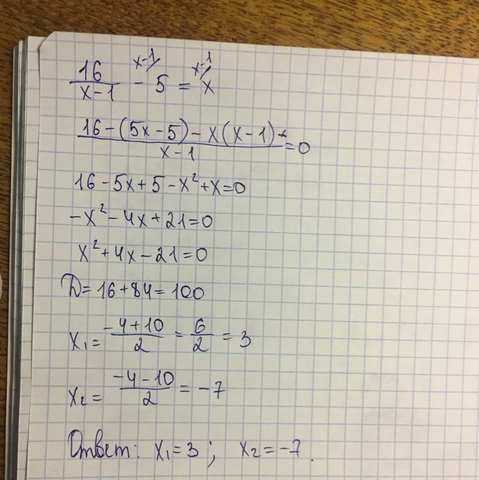 16/(x-1) - 5^(x-1/) = x^(x-1/)
(16-(5x-5)-x(x-1))/(x-1) = 0
16-5x+5-x²+x=0
-x²-4x+21=0
x²+4x-21=0
D=16+84=100
x₁=(-4+10)/2=6/2=3
x₂=(-4-10)/2=-7
Ответ: x₁=3; x₂=-7.